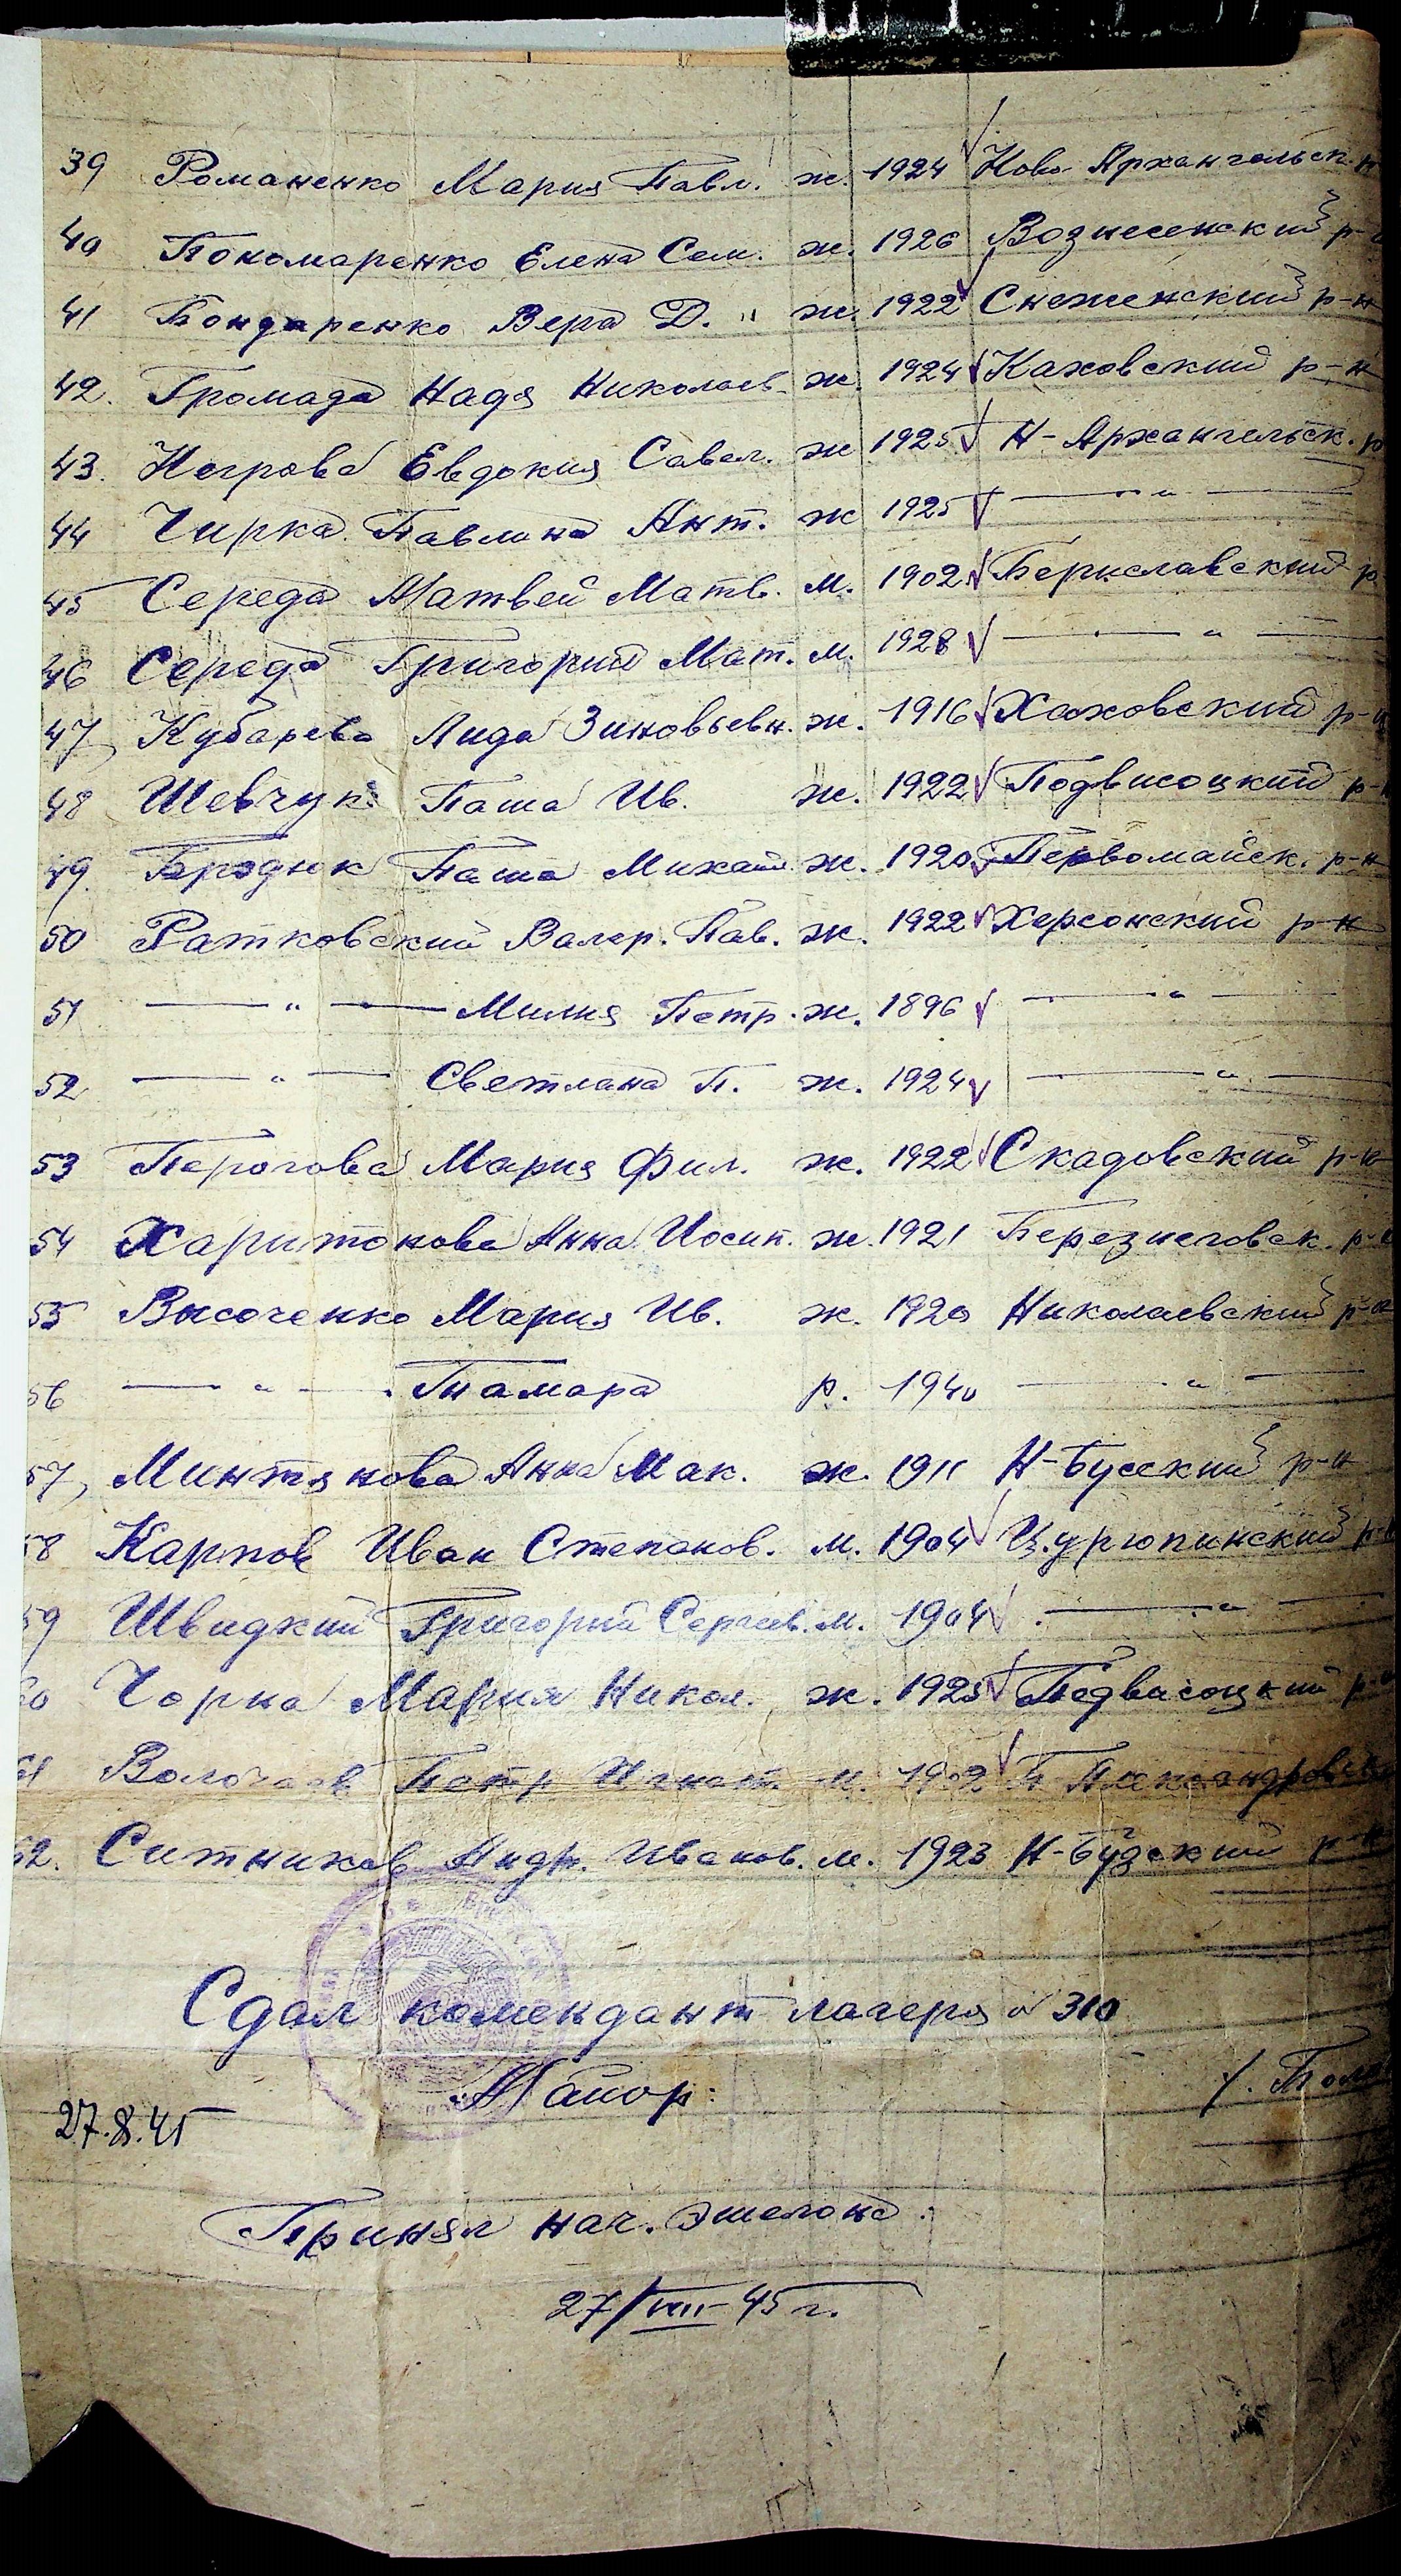 39 Романенко Мария Павл. ж. 1924 Ново-Архангельск. р-н
40 Пономаренко Елена Сем. ж. 1926 Вознесенский р-н
41 Бондаренко Вера Д. " ж. 1922 Снеженский р-н
42. Громада Надя Николаев. ж. 1924 Каховский р-н
43. Негрова Евдокия Савел. ж 1925 Н-Архангельск. р
44 Чирка Павлина Ант. ж 1925 — " —
45 Середа Матвей Матв. м. 1902 Бериславский р
46 Середа Григорий Мат. м. 1928 — " —
47, Кубарева Лида Зиновьевн. ж. 1916 Каховский р-н
48 Шевчук Паша Ив. ж. 1922 Подвисоцкий р-н
49. Бродюк Паша Михайл. ж. 1920 Первомайск. р-н
50 Ратковский Валер. Пав. ж. 1922 Херсонский р-н
51 — " — Милия Петр. ж. 1896 — " —
52 — " — Светлана П. ж. 1924 — " —
53 Перогова Мария Фил. ж. 1922 Скадовский р-н
54 Харитонова Анна Иосип. ж. 1921 Березнеговск. р-н
55 Высоченко Мария Ив. ж. 1920 Николаевский р-н
56 — " — Тамара р. 1940 — " —
57, Минтянова Анна Мак. ж. 1911 Н-Бугский р-н
58 Карпов Иван Степанов. м. 1904 Цурюпинский р-н
59 Швидкий Григорий Сергеев. м. 1904 — " —
60 Чорна Мария Никол. ж. 1925 Подвисоцкий р-н
61 Волочаев Петр Игнат. м. 1902 Б Александровск
62. Ситников Андр. Иванов. м. 1923 Н-Бугский р-н
Сдал комендант лагеря № 310
Майор:
27.8.45
Принял нач. эшелона:
27/VIII-45 г.